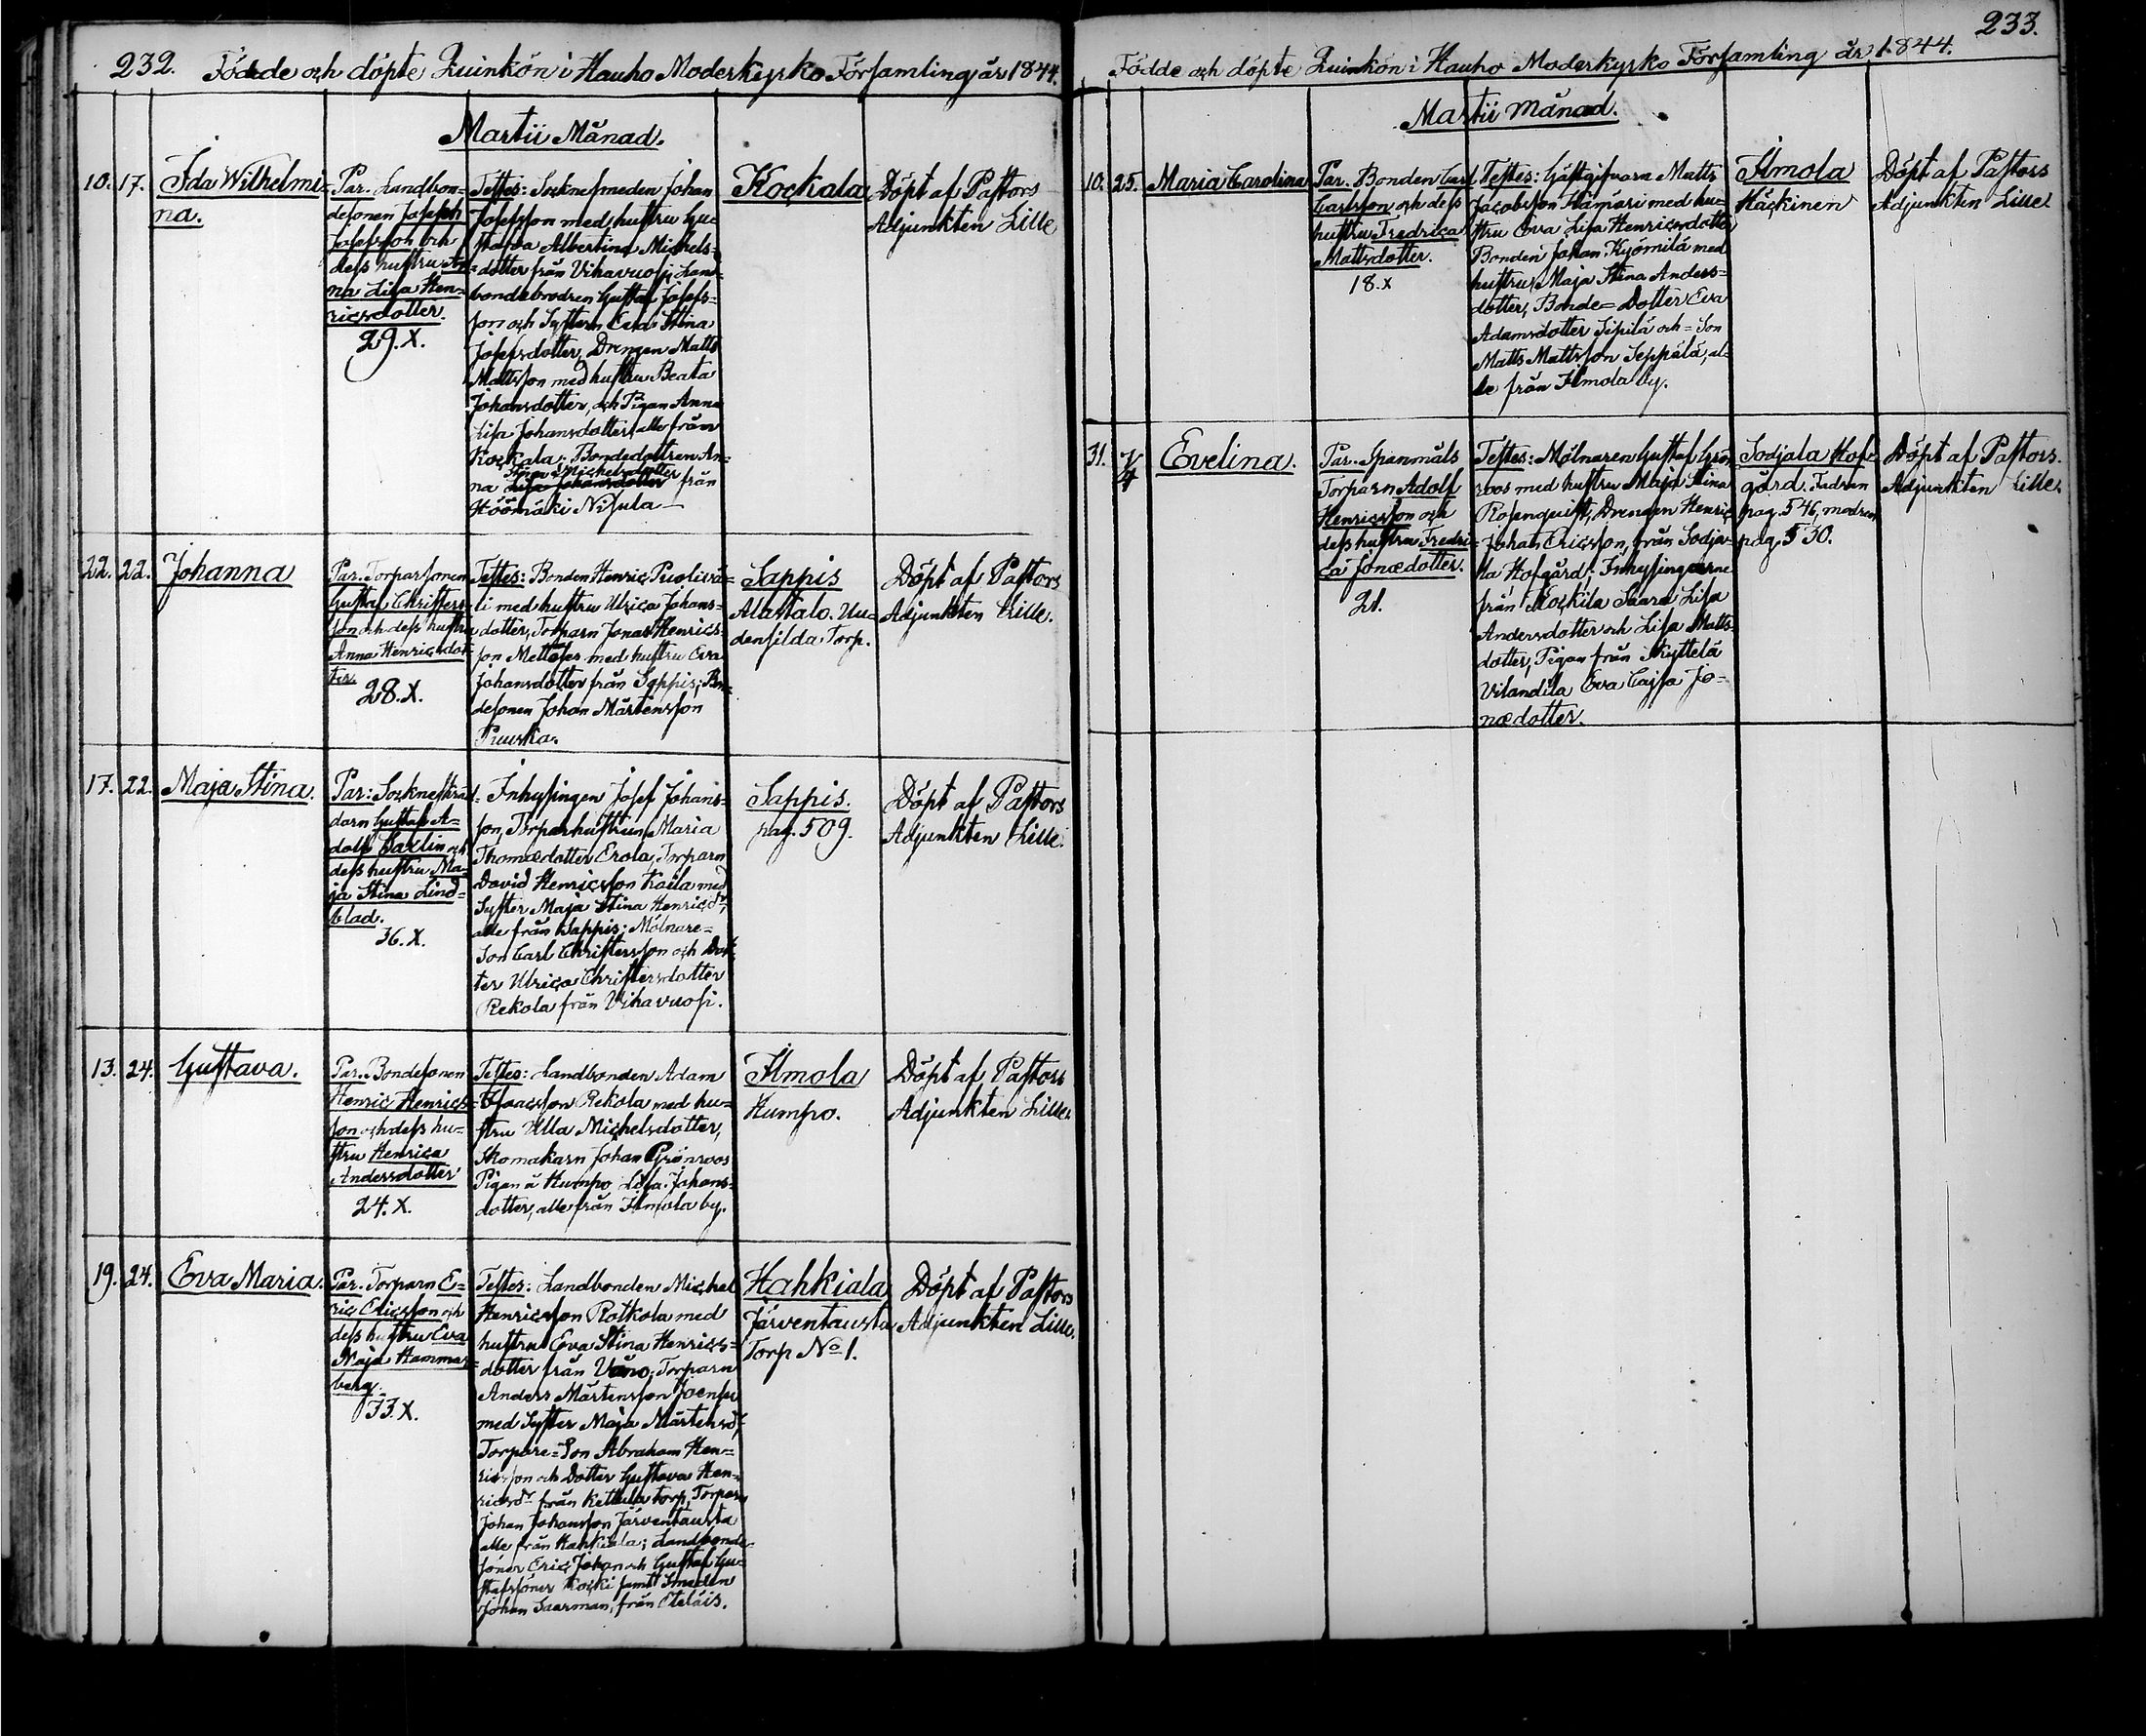 232. Födde och döpte Quinkön i Hauho Moderkyrko Församling år 1844.
Martii Månad.
10. 17. Ida Wilhelmi-
na.
Par. Landbon-
desonen Joseph
Josefsson och
dess hustru An-
na Lisa Hen-
ricsdotter.
29. X.
Testes: Socknesmeden Johan
Josefsson med hustru Gu-
stafva Albertina Michels-
dotter från Vihavuosi; Land-
bondebrodren Gustaf Josefs-
son och Systern Eva Stina
Josefsdotter, Drengen Matts
Mattsson med hustru Beata
Johansdotter, och Pigan Anna
Lisa Johansdotter, alle från
Kockala; Bondedottren An-
Stina Michelsdotter
na Lisa Johansdotter från
Höömäki Nisula
Kockala
Döpt af Pastors
Adjunkten Lille
22. 22. Johanna
Par. Torparsonen
Gustaf Christers-
son och dess hustru
Anna Henricsdot-
ter.
28. X.
Testes: Bonden Henric Puoliwä-
li med hustru Ulrica Johans-
dotter, Torparn Jonas Henrics-
son med hustru Eva
Johansdotter från Sappis; Bon-
desonen Johan Mårtensson
Puuska.
Sappis
Alastalo. Uu-
densilda Torp.
Döpt af Pastors
Adjunkten Lille.
17. 22. Maja Stina.
Par: Socknesträd-
darn Gustaf A-
dolf Saxlin och
dess hustru Ma-
ja Stina Lind-
blad.
36. X.
Inhysingen Josef Johans-
son, Torparhustrun Maria
Thomædotter Erola, Torparn
David Henricsson Kaila med
Syster Maja Stina Henricsdr,
alle från Sappis; Mölnare-
Son Carl Christersson och Dot-
ter Ulrica Christersdotter
Rekola från Vihavuosi.
Sappis.
pag. 509.
Döpt af Pastors
Adjunkten Lille.
13. 24. Gustava.
Par. Bondesonen
Henric Henrics-
son och dess hu-
stru Henrica
Andersdotter
24. X.
Testes: Landbonden Adam
Isaacsson Rekola med hu-
stru Ulla Michelsdotter,
Skomakarn Johan Grönroos
Pigan å Humpo Lisa Johans-
dotter, alle från Ilmola by.
Ilmola
Humpo.
Döpt af Pastors
Adjunkten Lille.
19. 24. Eva Maria.
Par. Torparn E-
ric Ericsson och
dess hustru Eva
Maja Hammar-
berg.
33. X.
Testes: Landbonden Michel
Henricsson Rotkola med
hustru Eva Stina Henrics-
dotter från Vano, Torparn
Anders Mårtensson Joensu
med Syster Maja Mårtensdr,
Torpare-Son Abraham Hen-
ricsson och Dotter Gustava Hen-
ricsdr från Kettula torp, Torparn
Johan Johansson Järventausta
alle från Hahkiala; Landbonde-
söner Eric Johan och Gustaf Gu-
stafssöner Kocki samt Smeden
Johan Saarman, från Eteläis.
Hahkiala
Järventausta
Torp No 1.
Döpt af Pastors
Adjunkten Lille.
233.
Födde och döpte Quinkön i Hauho Moderkyrko Församling år 1844.
Martii Månad.
10. 25. Maria Carolina
Par. Bonden Carl
Carlsson och dess
hustru Fredrica
Mattsdotter.
18. X
Testes: Gästgifvarn Matts
Jacobsson Hämäri med hu-
stru Eva Lisa Henricsdotter
Bonden Johan Kyömilä med
hustru Maja Stina Anders-
dotter, Bonde-Dotter Eva
Adamsdotter Sipilä och-Son
Matts Mattsson Seppälä, al-
le från Ilmola by.
Ilmola
Häckinen
Döpt af Pastors
Adjunkten Lille
31. 7/4 Evelina.
Par. Spanmåls
Torparn Adolf
Henricsson och
dess hustru Fredri-
ca Jonædotter.
21.
Testes: Mölnaren Gustaf Grön-
roos med hustru Maja Stina
Rosenquist, Drengen Henric
Johan Ericsson, från Sodja-
la Hofgård; Inhysingarne
från Kockila Saara Lisa
Andersdotter och Lisa Matts-
dotter, Pigan från Skyttelä
Vilandila Eva Cajsa Jo-
nædotter.
Sodjala Hof-
gård. Fadren
pag. 546, modren
pag. 530.
Döpt af Pastors.
Adjunkten Lille.